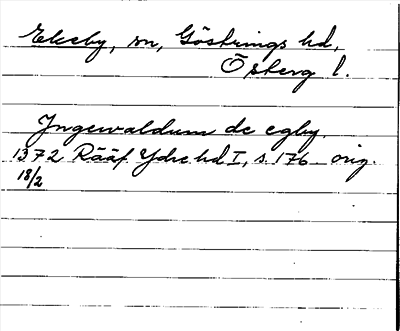 Ekeby, sn, Göstrings hd,
Östberg l.
Yngewaldum de egby.
1372 Rääf Ydre hd I, s. 176 orig.
18/2